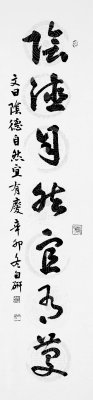 陰德自然宜有慶
文曰陰德自然宜有慶辛卯冬白研